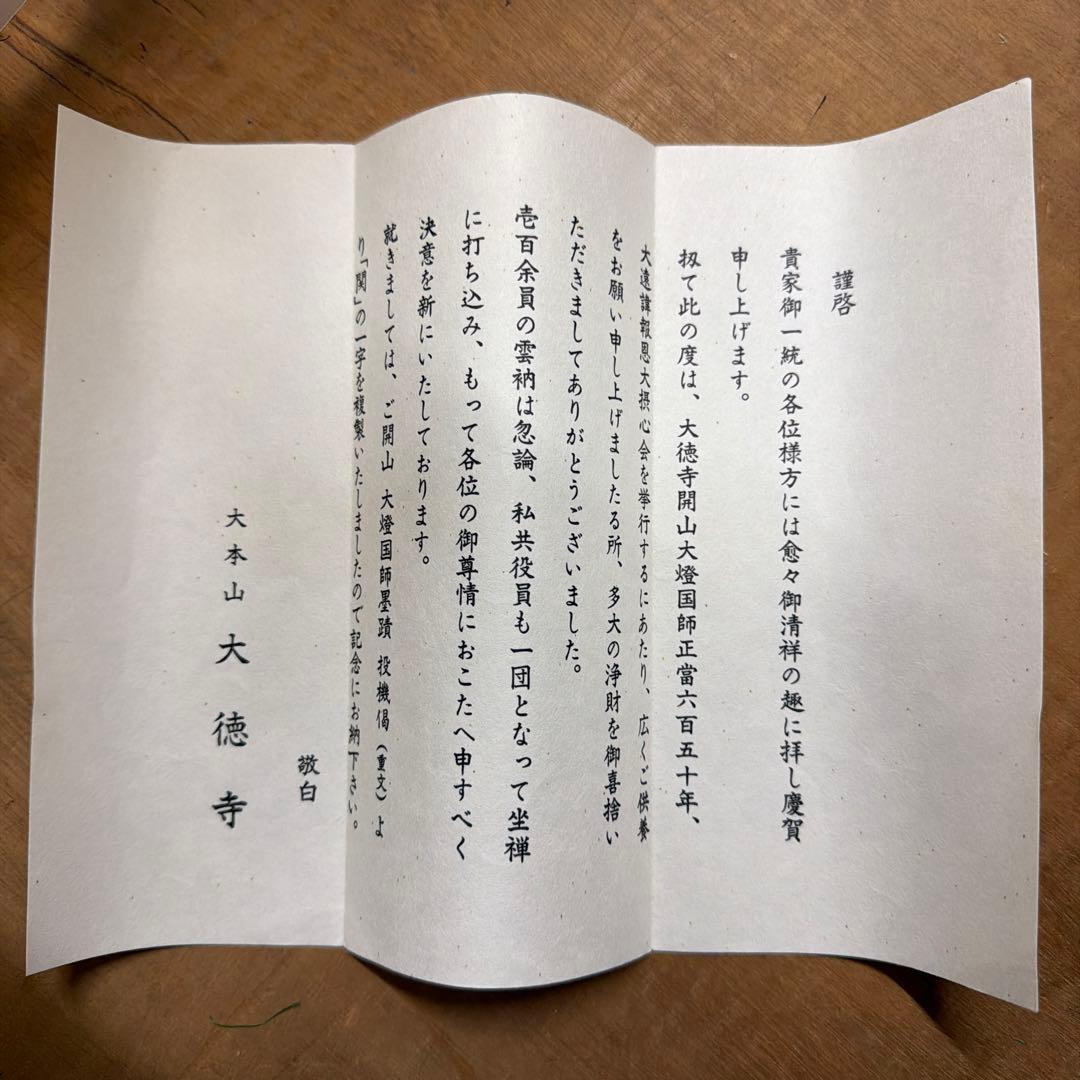 謹啓
貴家御一統の各位様方には愈々御清祥の趣に拝し慶賀
申し上げます。
扨て此の度は、大徳寺開山大燈国師正當六百五十年、
大遠諱報恩大摂心会を挙行するにあたり、広くご供養
をお願い申し上げましたる所、多大の浄財を御喜捨い
ただきましてありがとうございました。
壱百余員の雲衲は忽論、私共役員も一団となって坐禅
に打ち込み、もって各位の御尊情におこたへ申すべく
決意を新にいたしております。
就きましては、ご開山 大燈国師墨蹟 投機偈（重文）よ
り「関」の一字を複製いたしましたので記念にお納下さい。
敬白
大本山 大徳寺